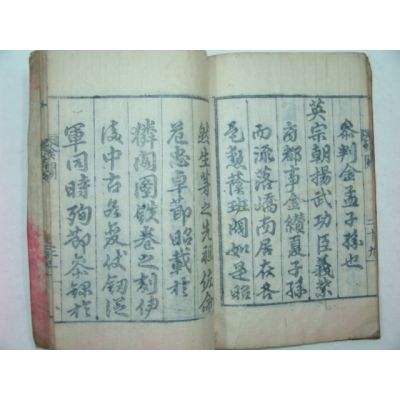 參判金孟子孫也
英宗朝揚武功臣義禁
府都事金纘夏子孫
而派落嶠南居在各
邑蟬薰班閥如是昭
然生等之先祖佐命
危忠卓節昭載於
麟閣圖鐵卷之刻伊
後中古各處仗釼從
軍同時殉節叅錄於
二十九